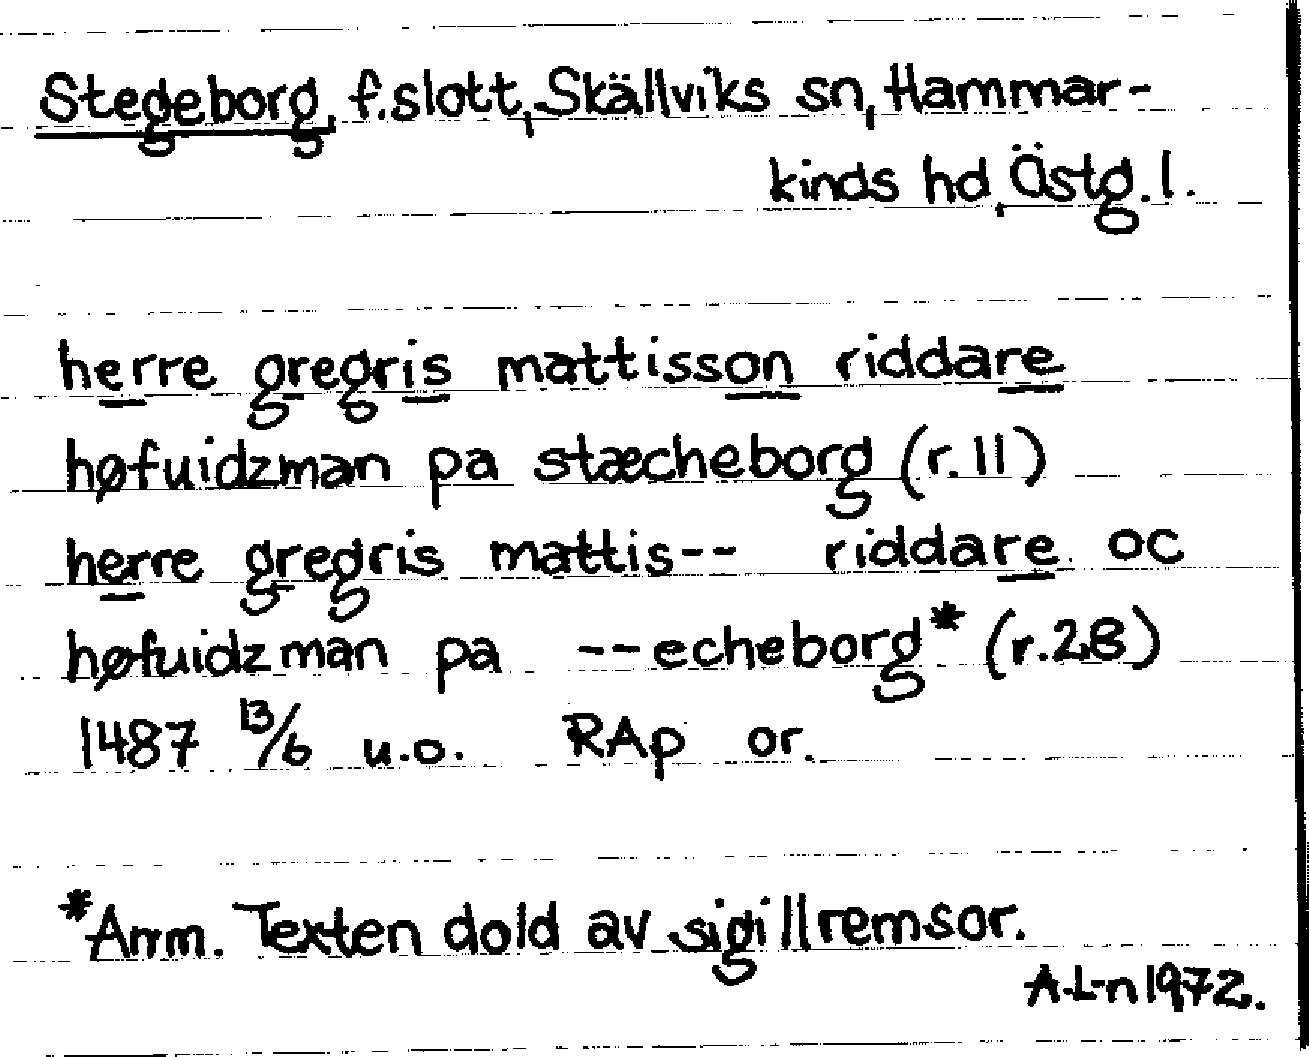 Stegeborg, f.slott, Skällviks sn, Hammar-
kinds hd, Östg.l.
herre gregris mattisson riddare
høfuidzman pa stæcheborg (r.11)
herre gregris mattis-- riddare oc
høfuidzman pa --echeborg* (r.28)
1487 13/6 u.o. RAp or.
*Anm. Texten dold av sigillremsor.
A.L-n 1972.